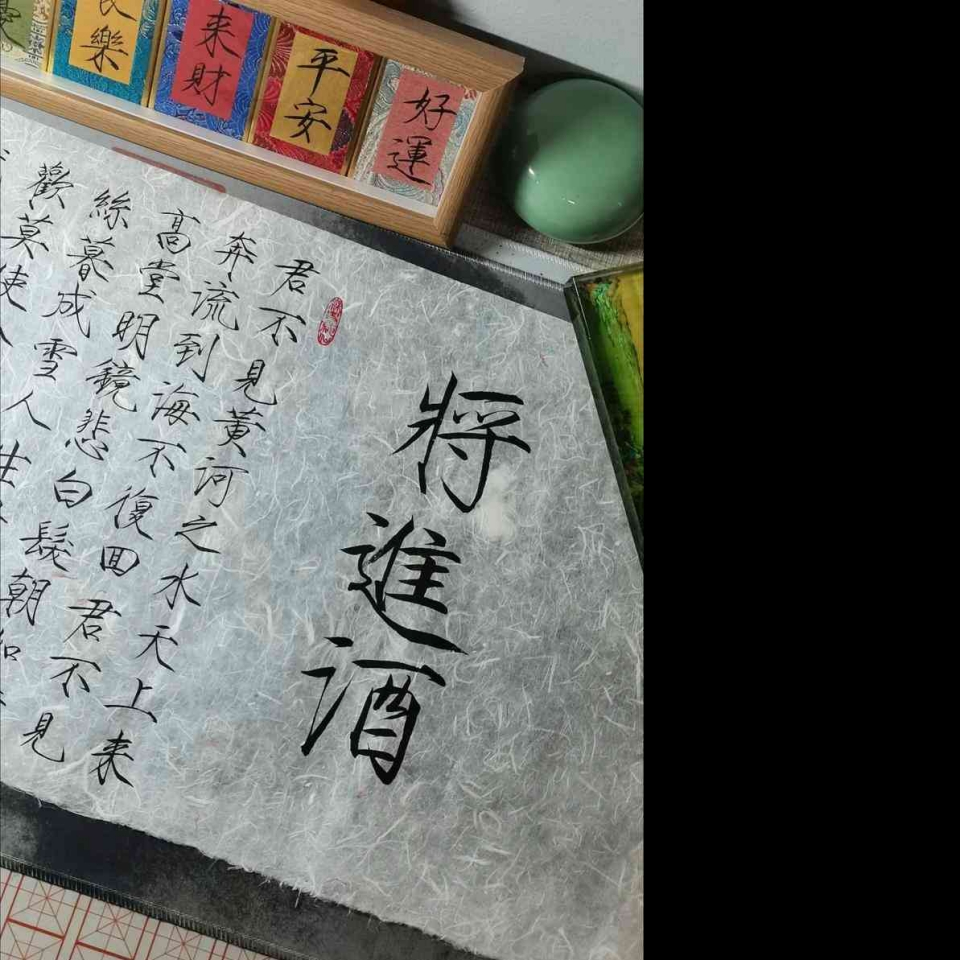 將進酒
君不見黃河之水天上来
奔流到海不復回君不見
高堂明鏡悲白髮朝
絲暮成雪人生
歡莫使人
長樂
来財
平安
好運